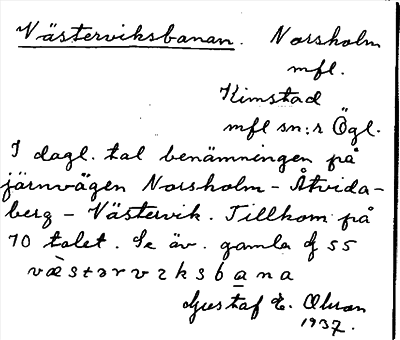 Västerviksbanan. Norsholm
mfl.
Kimstad
mfl sn:r Ögl.
I dagl. tal benämningen på
järnvägen Norsholm - Åtvida-
berg - Västervik. Tillkom på
70 talet. Se äv. gamla § 55
Gustaf E.
1937.